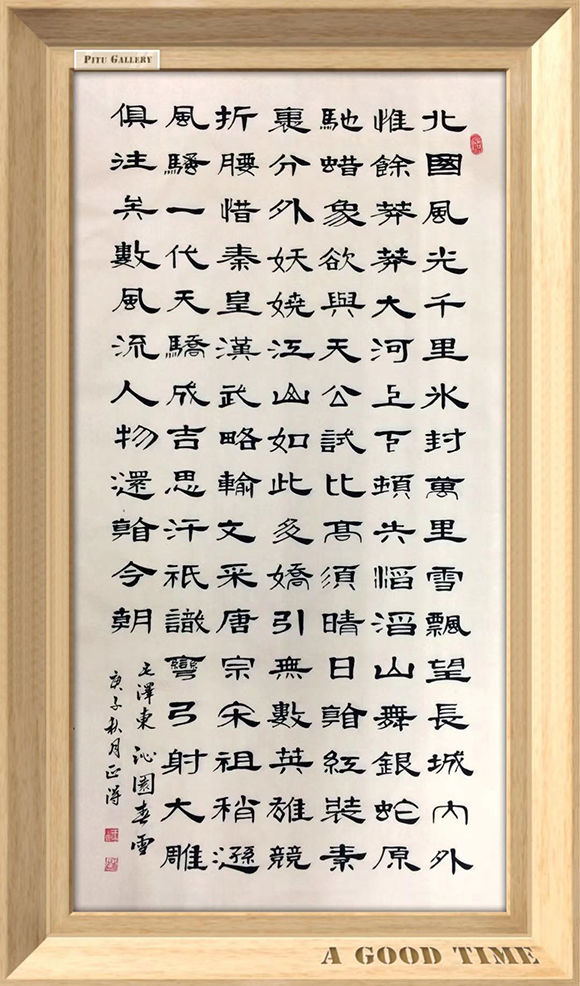 PITU GALLERY
北國風光千里氷封萬里雪飄望長城内外
惟餘莽莽大河上下頓失滔滔山舞銀蛇原
馳蜡象欲與天公試比髙須晴日看紅裝素
裹分外妖嬈江山如此多嬌引無數英雄競
折腰惜秦皇漢武略輸文采唐宗宋祖稍遜
風騷一代天驕成吉思汗祇識彎弓射大雕
俱往矣數風流人物還看今朝
毛澤東 沁園春雪
庚子秋月正得
A GOOD TIME